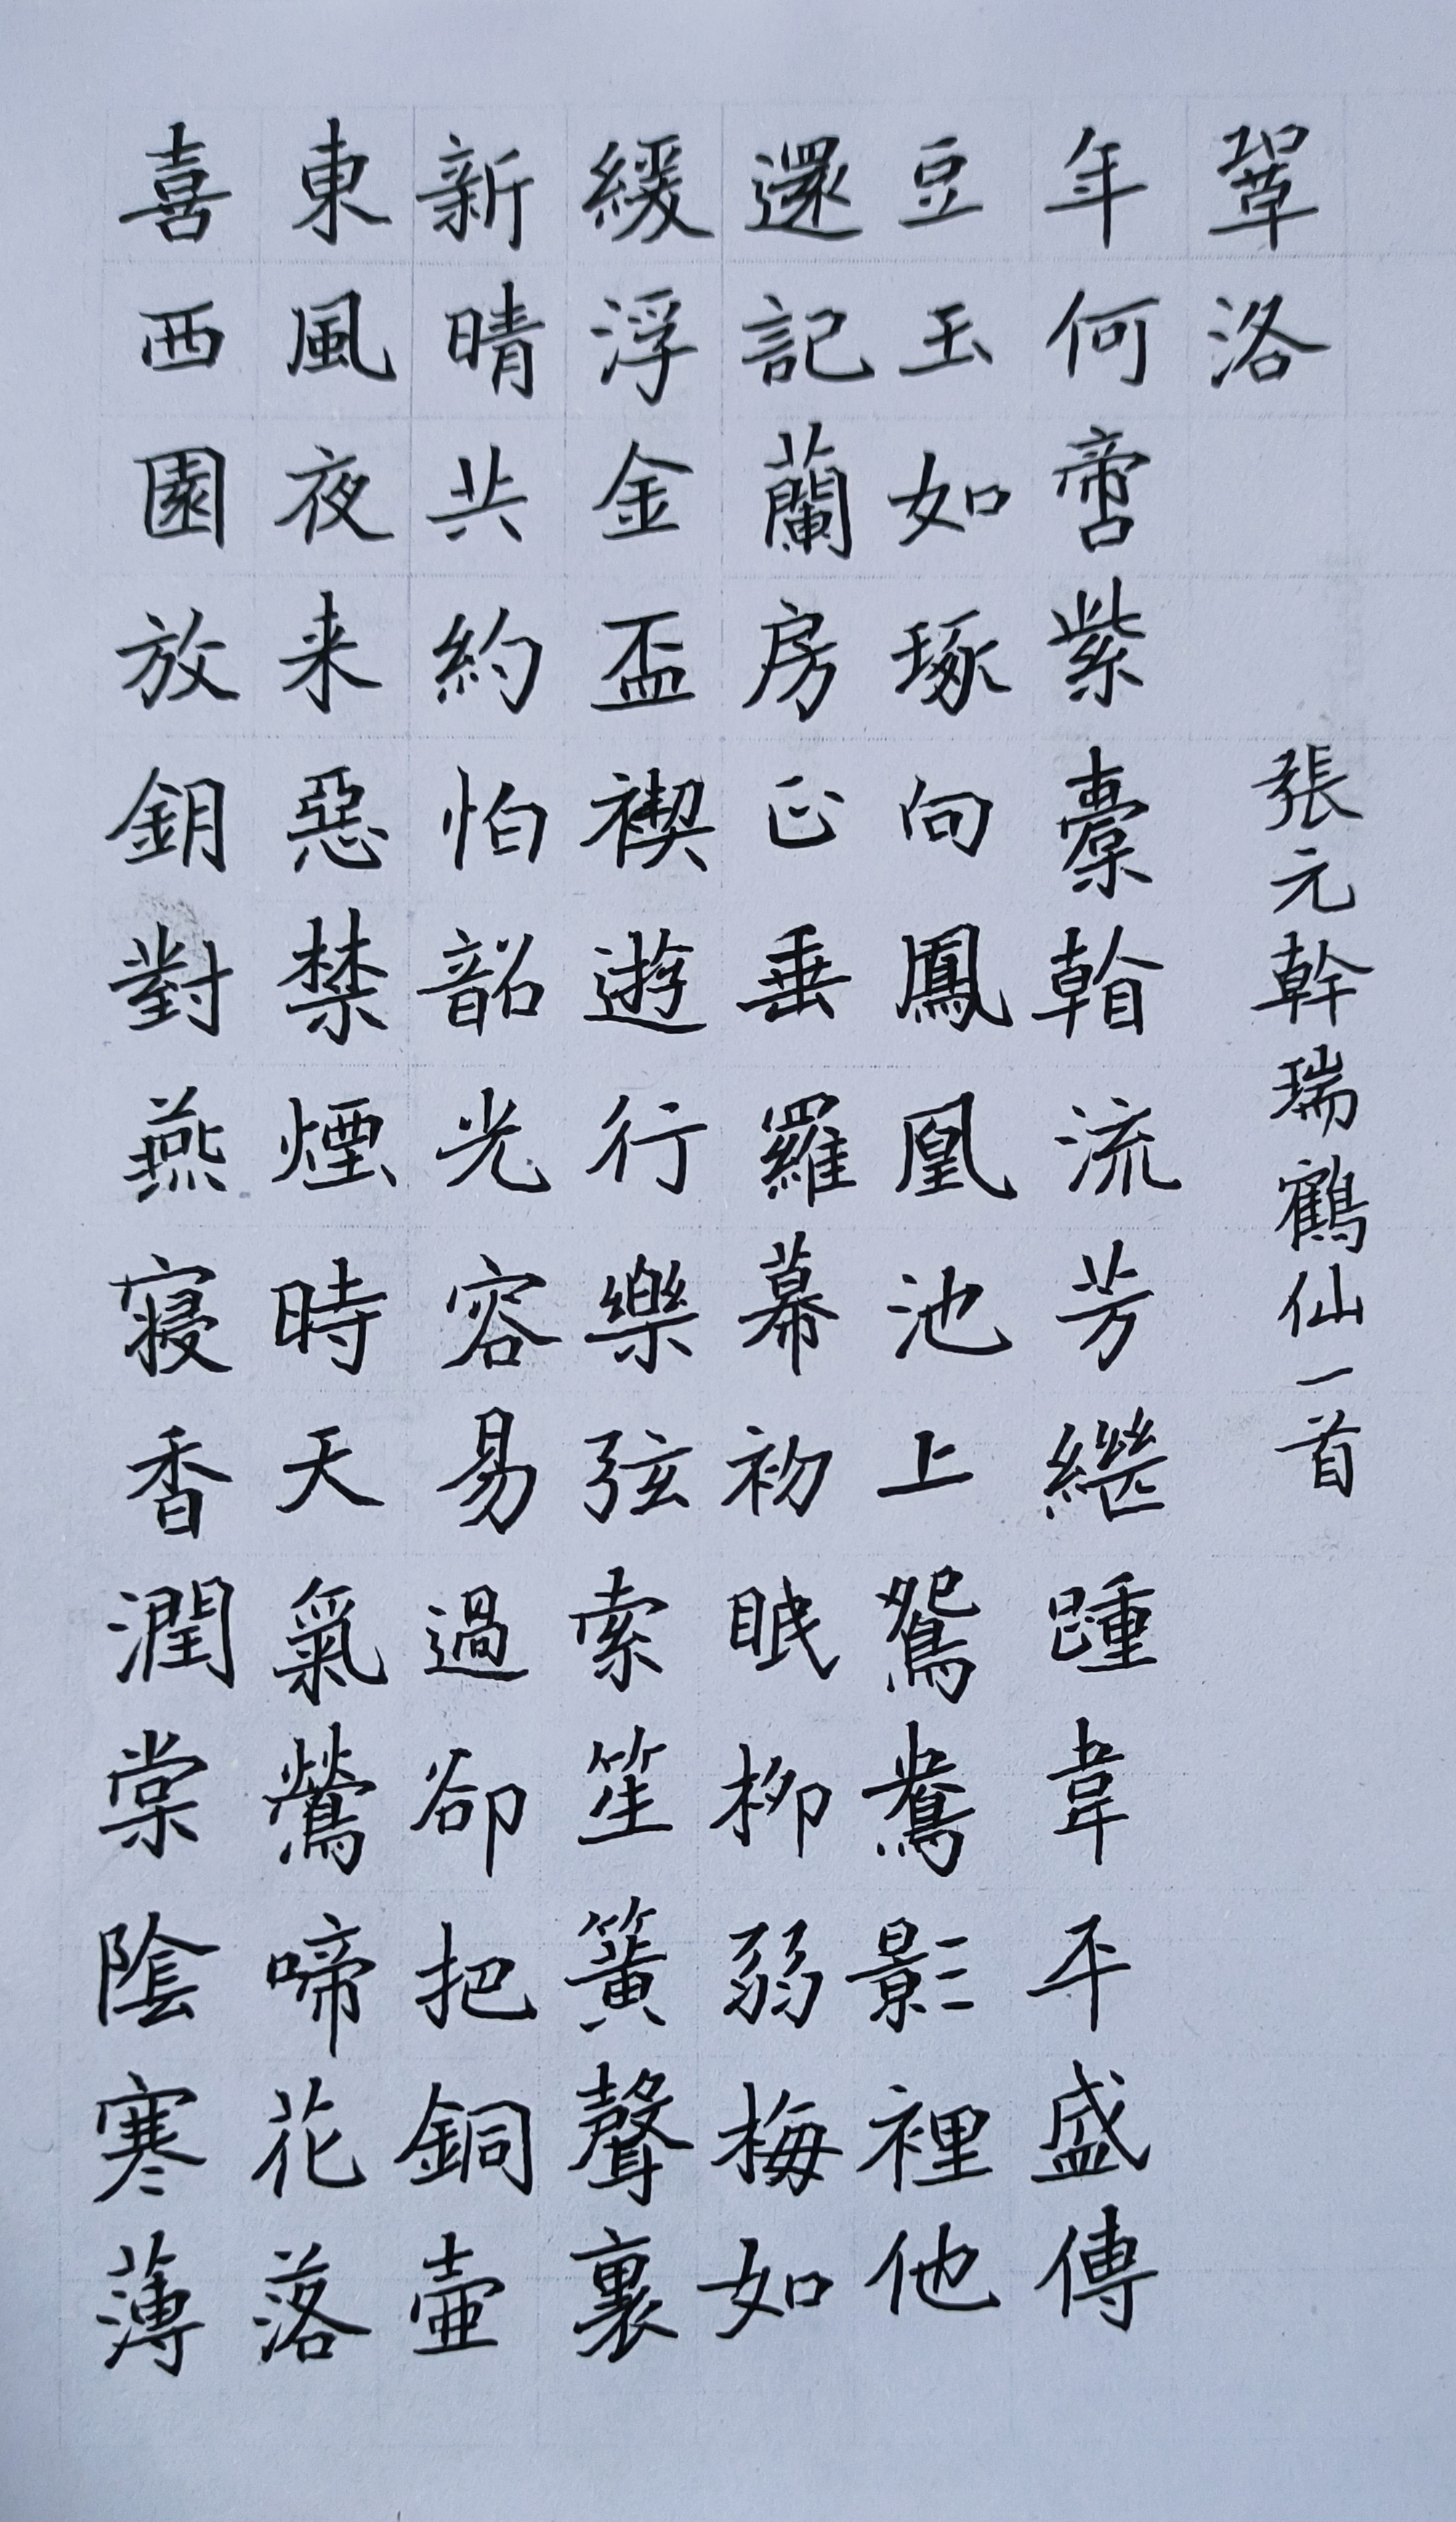 喜西園放鈅對燕寝香潤棠陰寒薄
東風夜来惡禁煙時天氣鶯啼花落
新晴共約怕韶光容易過卻把銅壺
緩浮金盃禊遊行樂弦索笙簧聲裏
還記蘭房正垂羅幕初眠柳弱梅如
豆玉如琢向鳳凰池上鴛鴦影裡他
年何啻紫橐流芳繼踵韋平盛傳
鞏洛
張元幹瑞鶴仙一首